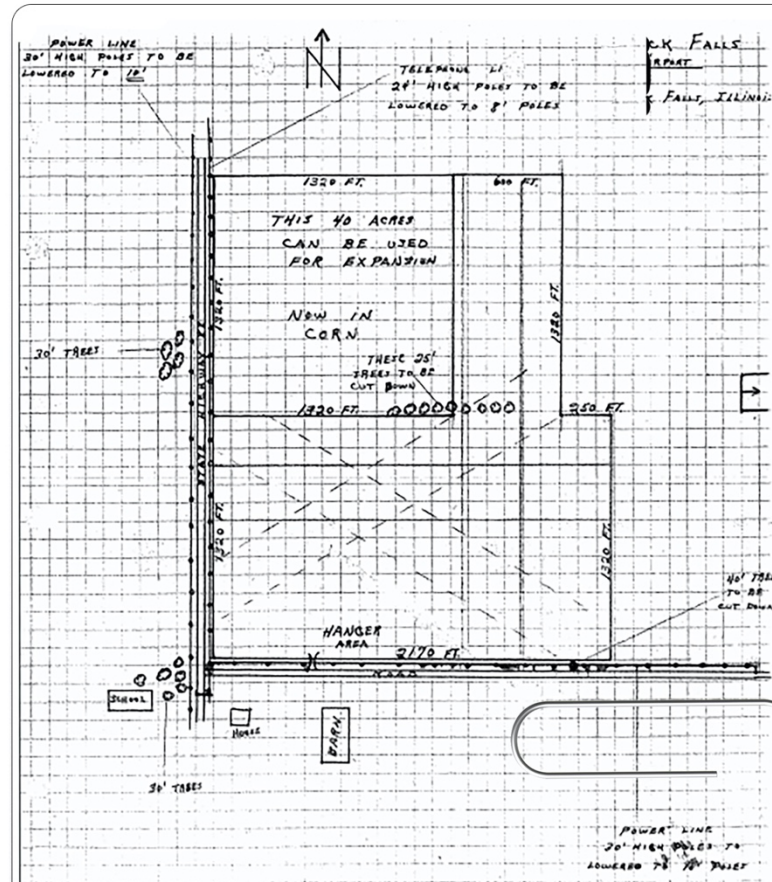 POWER LINE
30' HIGH POLES TO BE
LOWERED TO 10'
N
TELEPHONE LI
24' HIGH POLES TO BE
LOWERED TO 8' POLES
CK FALLS
RPORT
FALLS, ILLINOI
1320 FT.
600 FT.
THIS 40 ACRES
CAN BE USED
FOR EXPANSION
NOW IN
CORN
1320 FT.
1320 FT.
30' TREES
STATE HIGHWAY
THESE 25'
TREES TO BE
CUT DOWN
1320 FT.
250 FT.
1320 FT.
1320 FT.
40' TREE
TO BE
CUT DOWN
HANGER
AREA
2170 FT.
ROAD
SCHOOL
HOUSE
BARN
30' TREES
POWER LINE
30' HIGH POLES TO
LOWERED TO POLES